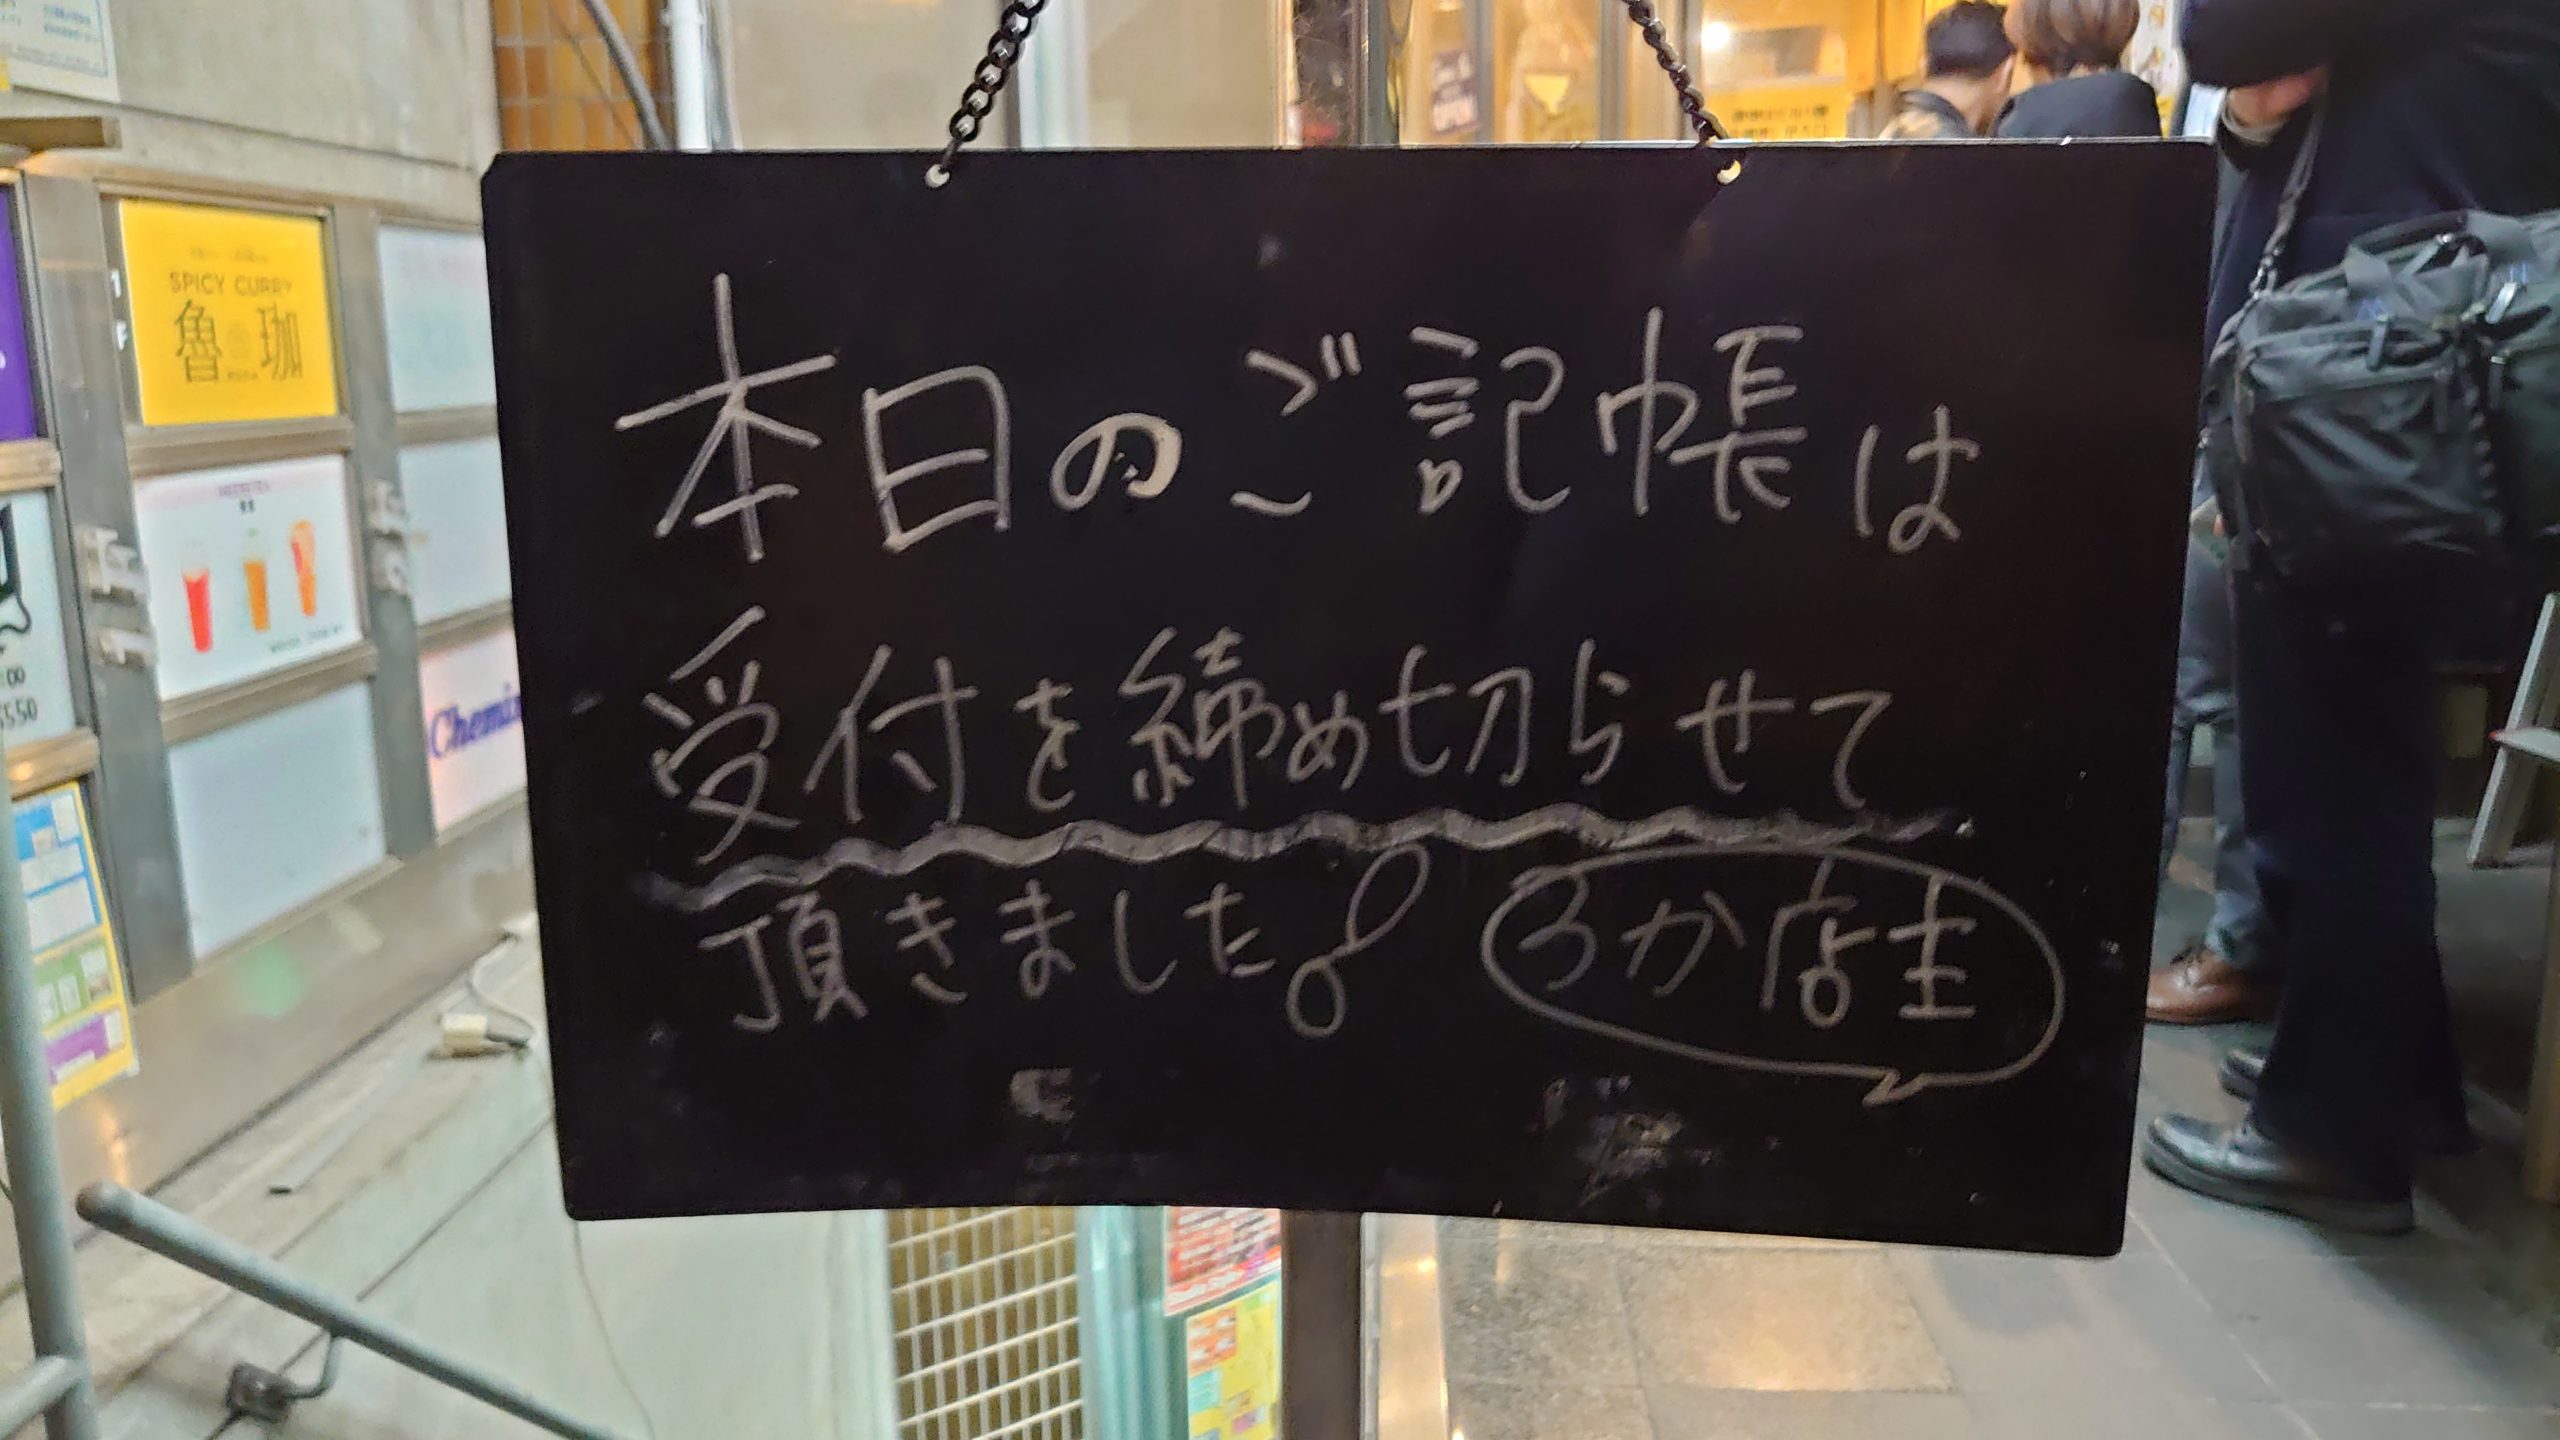 本日のご記帳は
受付を締め切らせて
頂きました!
ろか店主
SPICY CURRY
魯珈
Chemi
550